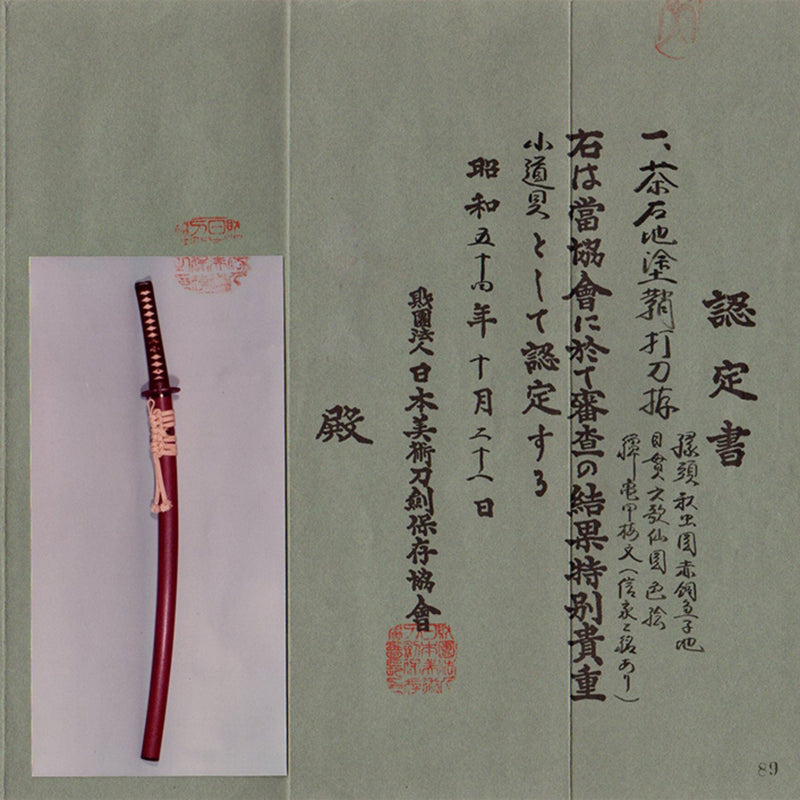 認定書
一、茶石地塗鞘打刀拵
縁頭 秋虫図赤銅魚子地
目貫 六歌仙図色絵
鐔 亀甲梅文(信家と銘あり)
右は當協會に於て審査の結果特別貴重
小道具として認定する
昭和五十四年十月二十八日
財團法人日本美術刀劍保存協會
殿
89